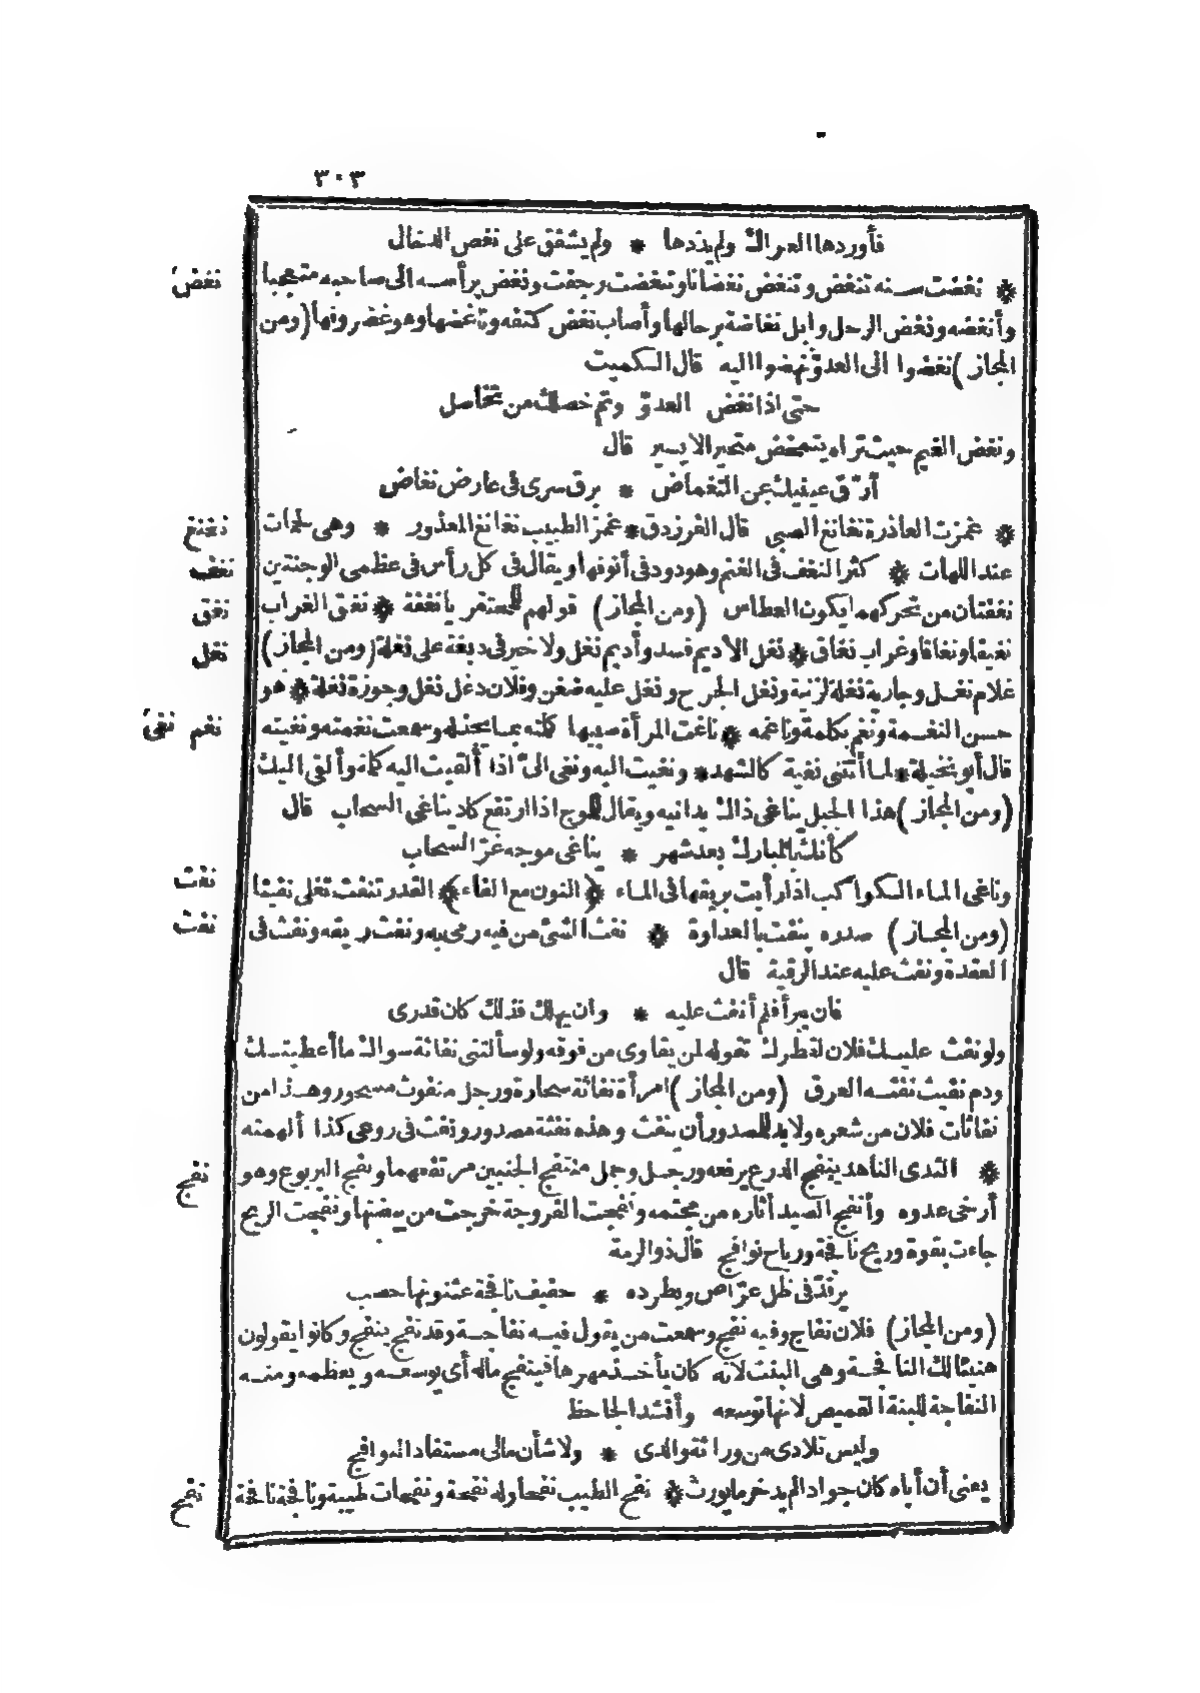 ٣٠٣
فأوردها العراك ولم يذدها * ولم يشفق على نغص الدخال
نغض
* نغضت سنه تنغض وتنغض نغضانا وتنغضت رجفت ونغض برأسه الى صاحبه متعجبا
وأنغضه ونغض الرحل وابل نغاضة برحالها وأصاب نغض كتفه وناغضها وهو غضروفها (ومن
المجاز) نغضوا الى العدوّ نهضوا اليه قال الكميت
حتى اذا نغض العدوّ وتم خصلك من تخاصل
ونغض الغيم حيث تراه يتمخض متحيرا لا يسير قال
أرّق عينيك عن التغماض * برق سرى فى عارض نغاض
نغنغ
* غمزت العاذرة نغانغ الصبى قال الفرزدق * غمز الطبيب نغانغ المعذور * وهى لحمات
نغف
عند اللهات * كثر النغف فى الغنم وهو دود فى أنوفها ويقال فى كل رأس فى عظمى الوجنتين
نغق
نغفتان من تحركهما يكون العطاس (ومن المجاز) قولهم للمحتقر يا نغفة * نغق الغراب
نغل
نغيقا ونغاقا وغراب نغاق * نغل الأديم فسد وأديم نغل ولا خير فى دبغة على نغلة (ومن المجاز)
غلام نغل وجارية نغلة لزنية ونغل الجرح ونغل عليه ضغن وفلان دغل نغل وجوزة نغلة * هو
نغم نغى
حسن النغمة ونغم بكلمة وناغمه * ناغت المرأة صبيها كلته بما يجذله وسمعت نغمته ونغيته
قال أبو نخيلة * لما أتتنى نغية كالشهد * ونغيت اليه ونغى الىّ اذا ألقيت اليه كلة وألقى اليك
(ومن المجاز) هذا الجبل يناغى ذاك يدانيه ويقال للموج اذا ارتفع كاد يناغى السحاب قال
كأنك بالمبارك بعد شهر * يناغى موجه غرّ السحاب
نفت
وناغى الماء الكواكب اذا رأيت بريقها فى الماء * (النون مع الفاء) * القدر تنفت تغلى نفيتا
نفث
(ومن المجاز) صدره ينفت بالعداوة * نفث الشئ من فيه رمى به ونفث ريقه ونفث فى
العقدة ونفث عليه عند الرقية قال
فان يبرأ فلم أنفث عليه * وان يهلك فذلك كان قدرى
ولو نفث عليك فلان لقطرك تقوله لمن يقاوى من فوقه ولو سألتنى نفاثة سواك ما أعطيتك
ودم نفيث نفثه العرق (ومن المجاز) امرأة نفاثة سحارة ورجل منفوث مسحور وهذا من
نفاثات فلان من شعره ولا بد للمصدور أن ينفث وهذه نفثة مصدور ونفث فى روعى كذا ألهمته
نفج
* الثدى الناهد ينفج الدرع يرفعه ورجل وجمل منتفج الجنبين مرتفعهما ونفج اليربوع وهو
أرخى عدوه وأنفج الصيد أثاره من مجثمه ونفجت الفروجة خرجت من بيضتها ونفجت الريح
جاءت بقوة وريح نافجة ورياح نوافج قال ذو الرمة
يرقدّ فى ظل عرّاص ويطرده * حفيف نافجة عثنونها حصب
(ومن المجاز) فلان نفاج وفيه نفج وسمعت من يقول فيه نفاجة وقد نفج ينفج وكانوا يقولون
هنيئا لك النافجة وهى البنت لانه كان يأخذ مهرها فينفج ماله أى يوسعه ويعظمه ومنه
النفاجة للبنة القميص لانها توسعه وأنشد الجاحظ
وليس تلادى من وراثة والدى * ولا شأن مالى مستفاد النوافج
نفح
يعنى أن أباه كان جوادا لم يدخر ما يورث * نفح الطيب نفحا وله نفحة ونفحات طيبة ونافحة نافحة